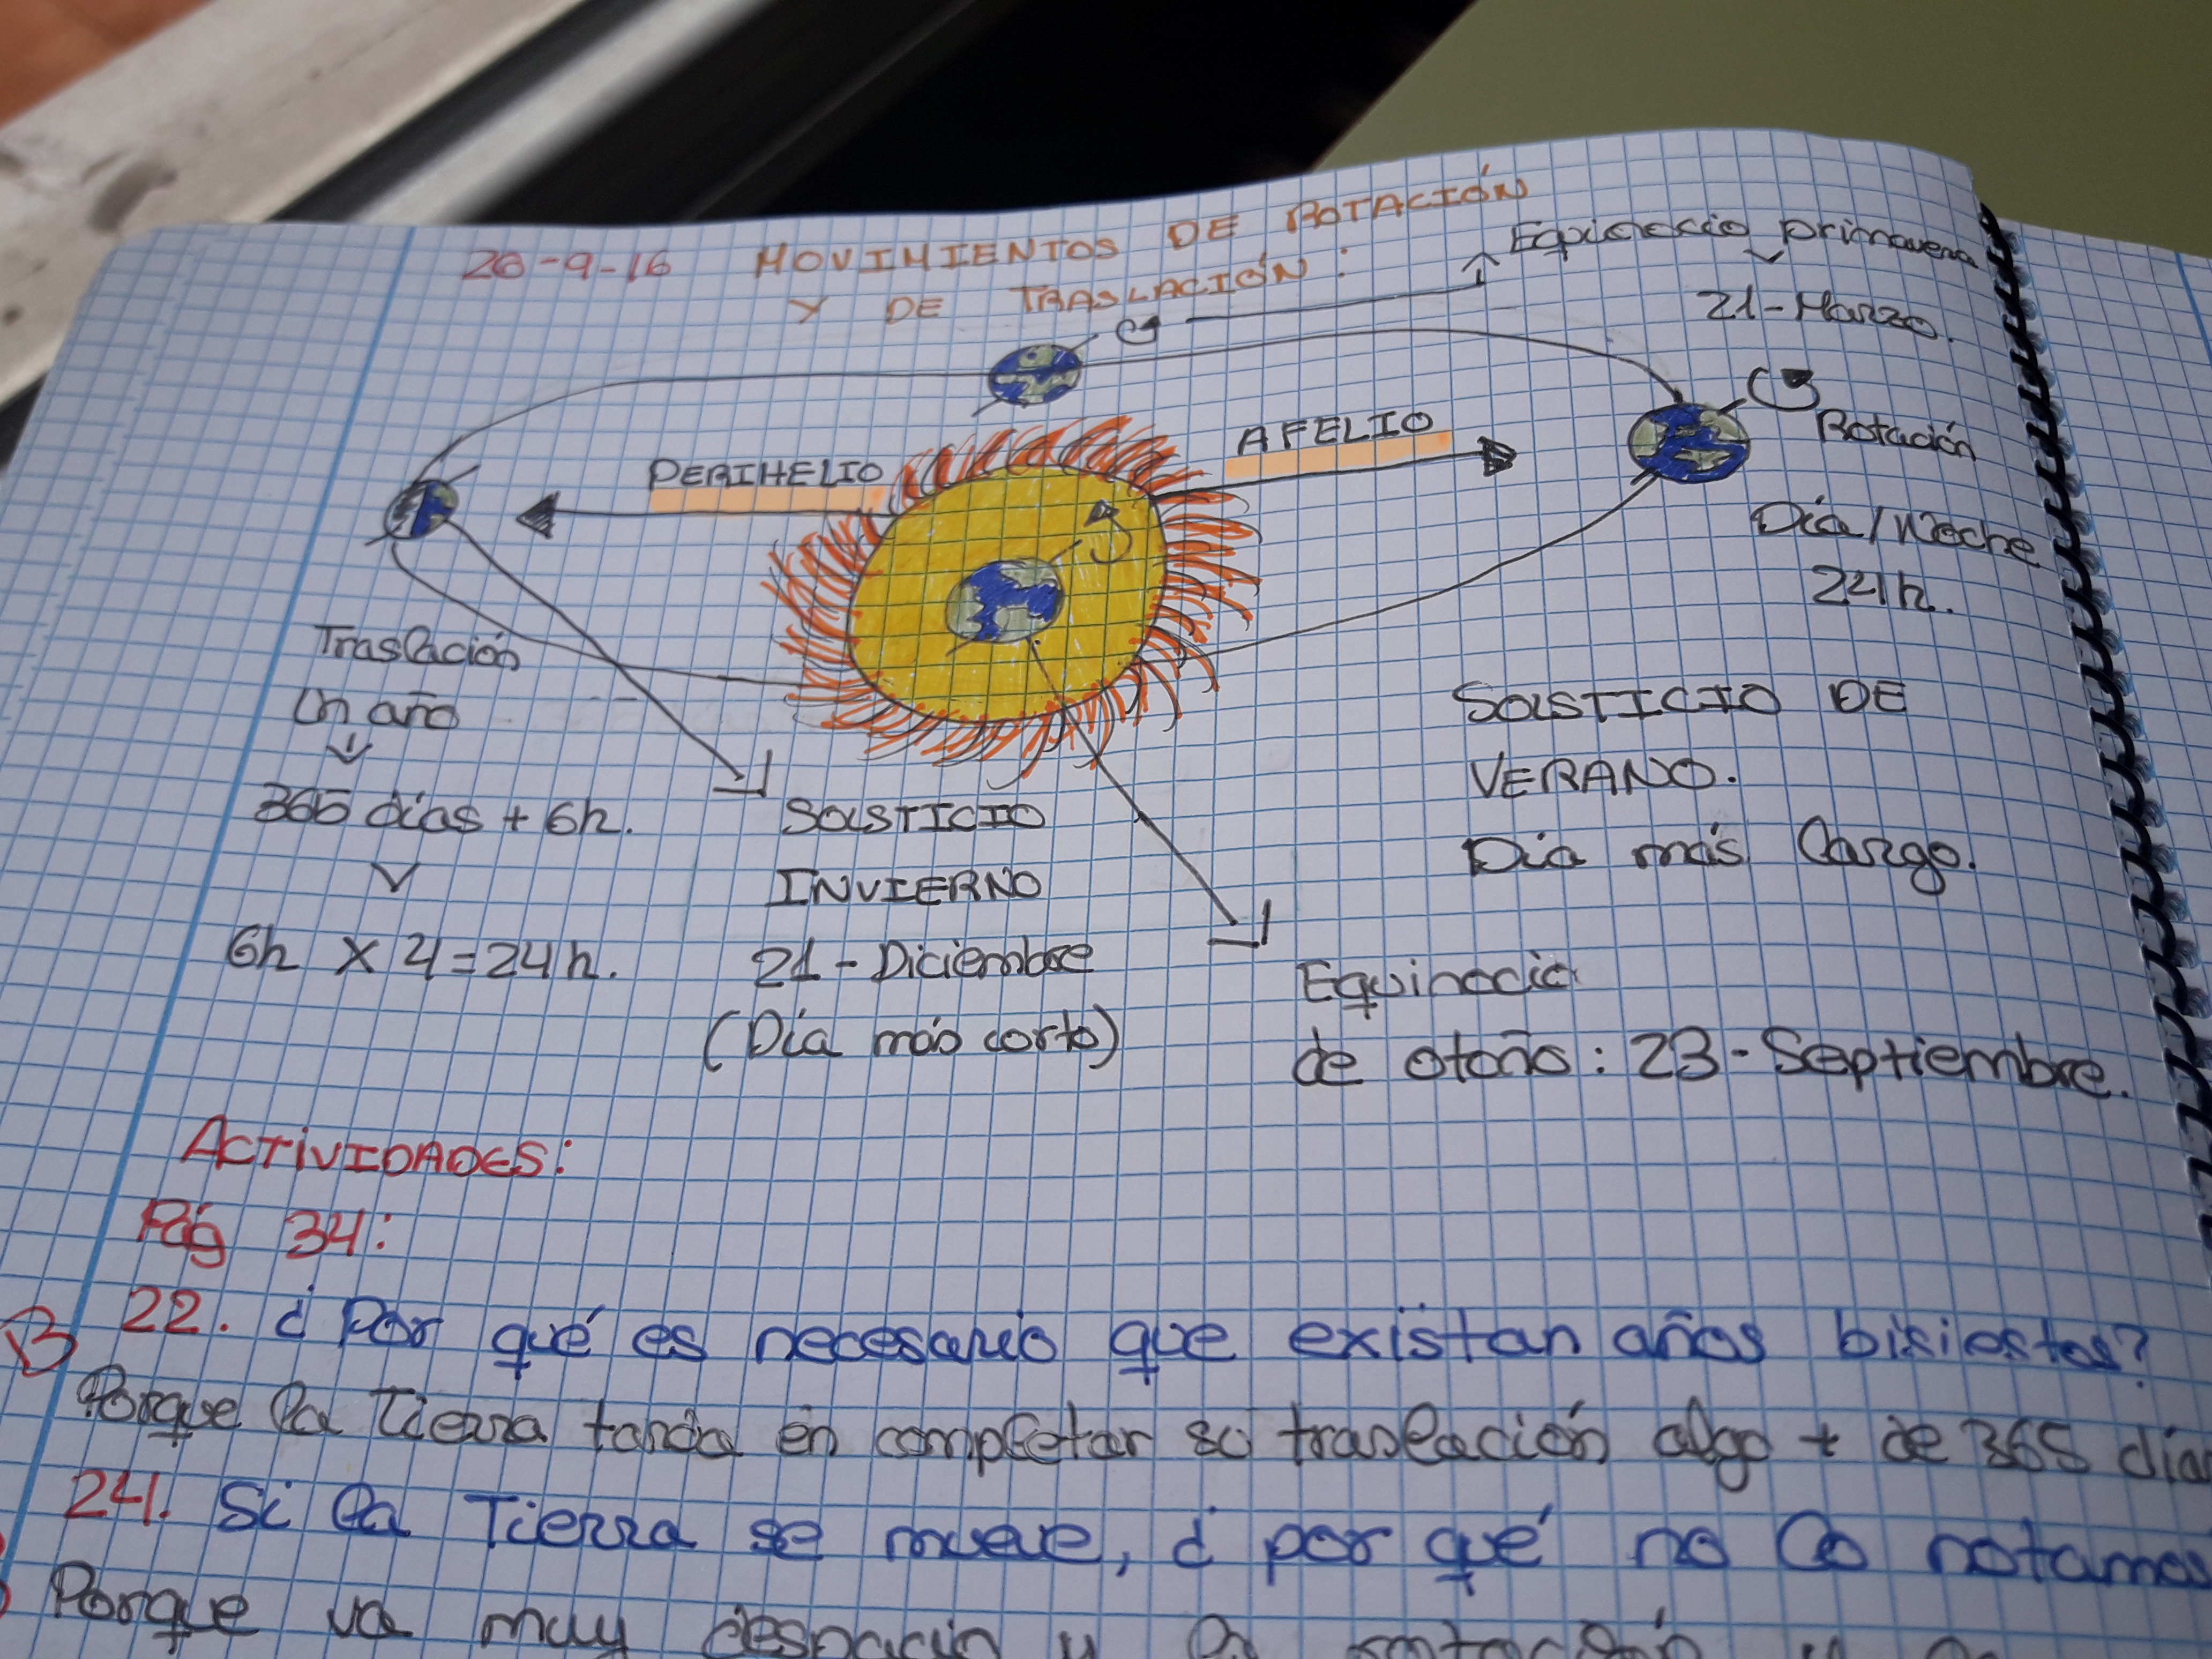 26-9-16 MOVIMIENTOS DE ROTACIÓN
Y DE TRASLACIÓN:
Equinoccio primavera
21-Marzo.
PERIHELIO
AFELIO
Rotación
Día/Noche
24h.
Traslación
Un año
365 días + 6h.
6h X 4=24h.
SOLSTICIO
INVIERNO
21-Diciembre
(Día más corto)
SOLSTICIO DE
VERANO.
Día más largo.
Equinoccio
de otoño: 23-Septiembre.
ACTIVIDADES:
Pág 34:
B 22. ¿Por qué es necesario que existan años bisiestos?
Porque la Tierra tarda en completar su traslación algo + de 365 días
24. Si la Tierra se mueve, ¿por qué no lo notamos
Porque va muy despacio y la rotación y